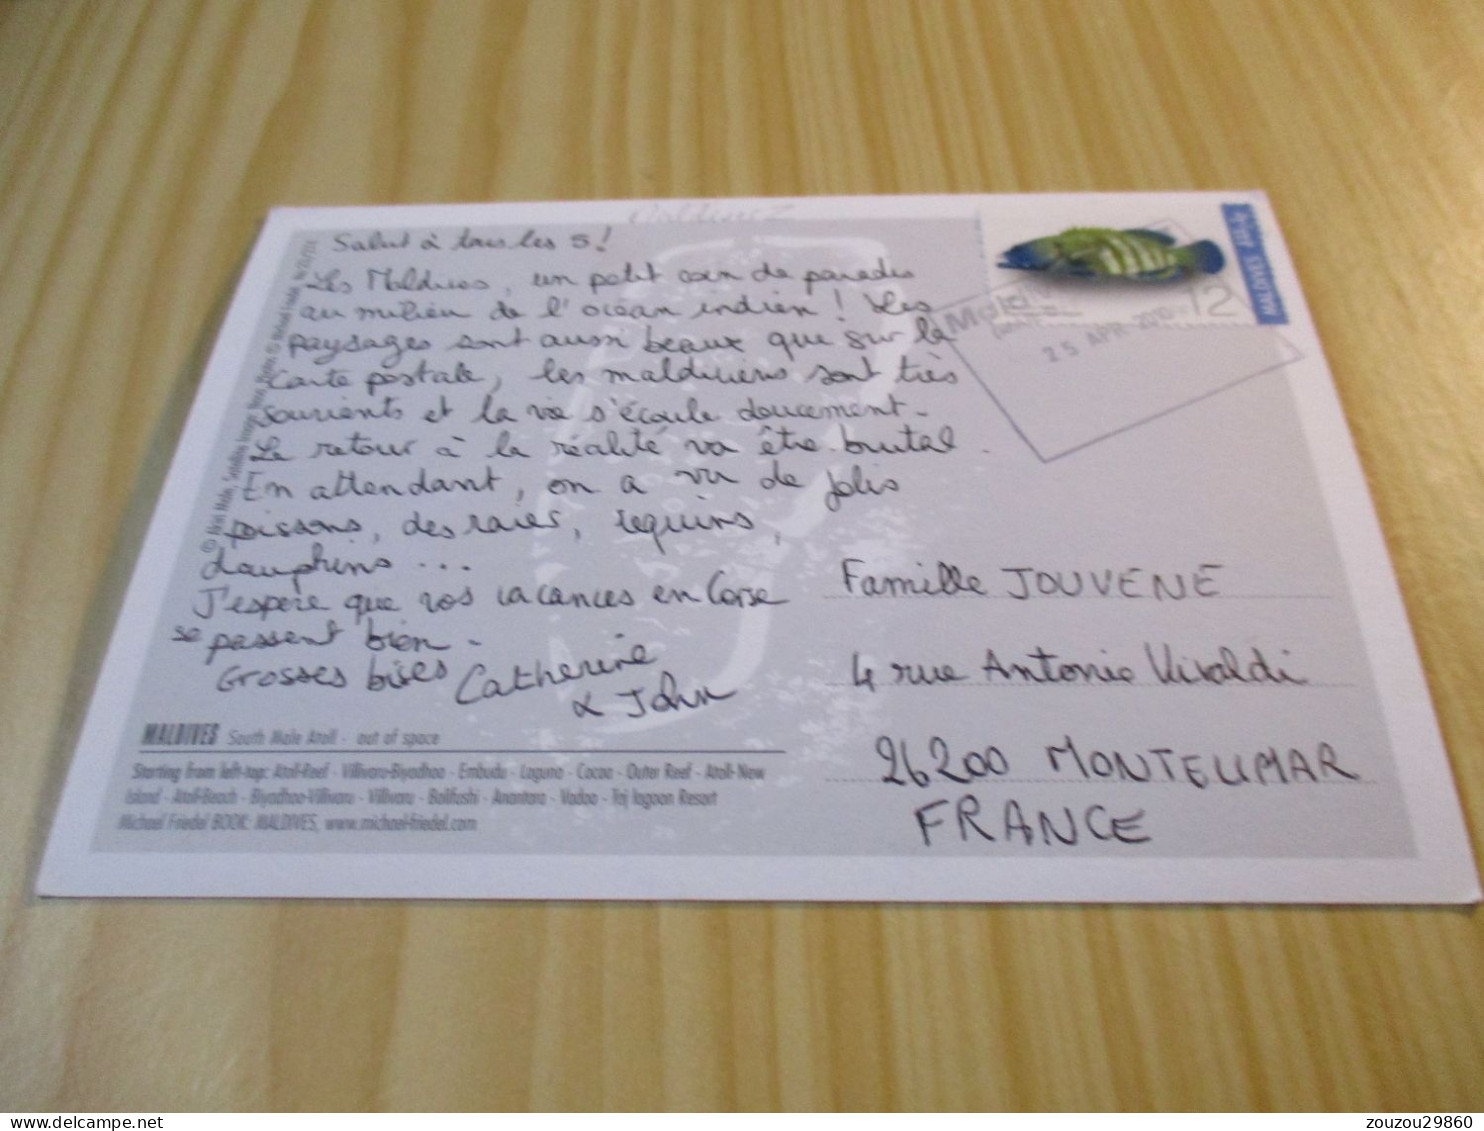 Salut à tous les 5!
Les Maldives, un petit coin de paradis
au milieu de l'océan indien! Les
paysages sont aussi beaux que sur la
carte postale, les maldiviens sont très
souriants et la vie s'écoule doucement.
Le retour à la réalité va être brutal.
En attendant, on a vu de jolis
poissons, des raies, requins,
dauphins...
J'espère que vos vacances en Corse
se passent bien.
Grosses bises Catherine
& John
MALDIVES South Male Atoll - out of space
Starting from left-top: Atoll-Reef - Villivaru-Biyadhoo - Embudu - Laguna - Cocoa - Outer Reef - Atoll-New
Island - Atoll-Beach - Biyadhoo-Villivaru - Villivaru - Bolifushi - Anantara - Vadoo - Taj lagoon Resort
Michael Friedel BOOK: MALDIVES, www.michael-friedel.com
MALDIVES
12
25 APR 20
Famille JOUVENE
4 rue Antonio Vivaldi
26200 MONTELIMAR
FRANCE
zouzou29860